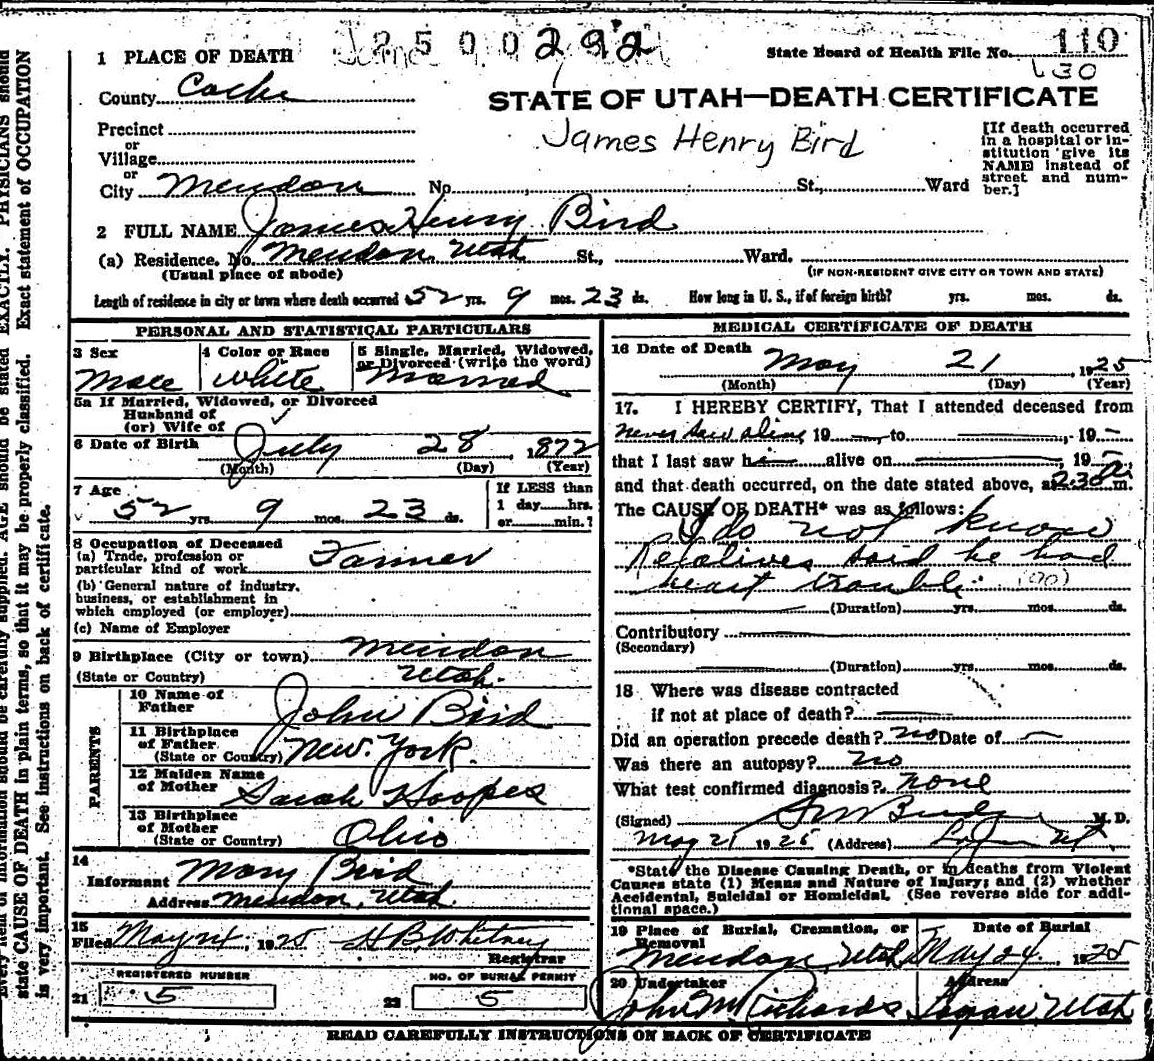 2500292
State Board of Health File No. 110
130
1 PLACE OF DEATH
County Cache
STATE OF UTAH—DEATH CERTIFICATE
James Henry Bird
Precinct
or
Village
or
City Mendon No. St., Ward
[If death occurred
in a hospital or in-
stitution give its
NAME instead of
street and num-
ber.]
2 FULL NAME James Henry Bird
(a) Residence. No. Mendon Utah St., Ward.
(Usual place of abode) (IF NON-RESIDENT GIVE CITY OR TOWN AND STATE)
Length of residence in city or town where death occurred 52 yrs. 9 mos. 23 ds. How long in U. S., if of foreign birth? yrs. mos. ds.
PERSONAL AND STATISTICAL PARTICULARS
3 Sex 4 Color or Race 5 Single, Married, Widowed,
or Divorced (write the word)
Male White Married
5a If Married, Widowed, or Divorced
Husband of
(or) Wife of
6 Date of Birth July 28 1872
(Month) (Day) (Year)
7 Age 52 yrs. 9 mos. 23 ds.
If LESS than
1 day....hrs.
or....min.?
8 Occupation of Deceased
(a) Trade, profession or
particular kind of work Farmer
(b) General nature of industry,
business, or establishment in
which employed (or employer)
(c) Name of Employer
9 Birthplace (City or town) Mendon
(State or Country) Utah.
PARENTS
10 Name of
Father John Bird
11 Birthplace
of Father
(State or Country) New. York.
12 Maiden Name
of Mother Sarah Hoopes
13 Birthplace
of Mother
(State or Country) Ohio
14
Informant Mary Bird
Address Mendon, Utah.
15
Filed May 24, 1925 H B. Whitney
Registrar
REGISTERED NUMBER NO. OF BURIAL PERMIT
21 5 22 5
MEDICAL CERTIFICATE OF DEATH
16 Date of Death May 21 1925
(Month) (Day) (Year)
17. I HEREBY CERTIFY, That I attended deceased from
Never saw alive 19 to , 19
that I last saw him alive on , 19
and that death occurred, on the date stated above, at 2:30 a m.
The CAUSE OF DEATH* was as follows:
I do not know
Relatives said he had
heart trouble. (90)
(Duration) yrs. mos. ds.
Contributory
(Secondary)
(Duration) yrs. mos. ds.
18 Where was disease contracted
if not at place of death?
Did an operation precede death? no Date of
Was there an autopsy? no
What test confirmed diagnosis? none
(Signed) M. D.
May 21 1925 (Address) Logan Ut.
*State the Disease Causing Death, or in deaths from Violent
Causes state (1) Means and Nature of Injury; and (2) whether
Accidental, Suicidal or Homicidal. (See reverse side for addi-
tional space.)
19 Place of Burial, Cremation, or
Removal Date of Burial
Mendon, Utah May 24. 1925
20 Undertaker Address
John M Richards Logan, Utah
READ CAREFULLY INSTRUCTIONS ON BACK OF CERTIFICATE
EXACTLY. PHYSICIANS should
state CAUSE OF DEATH in plain terms, so that it may be properly classified. Exact statement of OCCUPATION
is very important. See instructions on back of certificate.